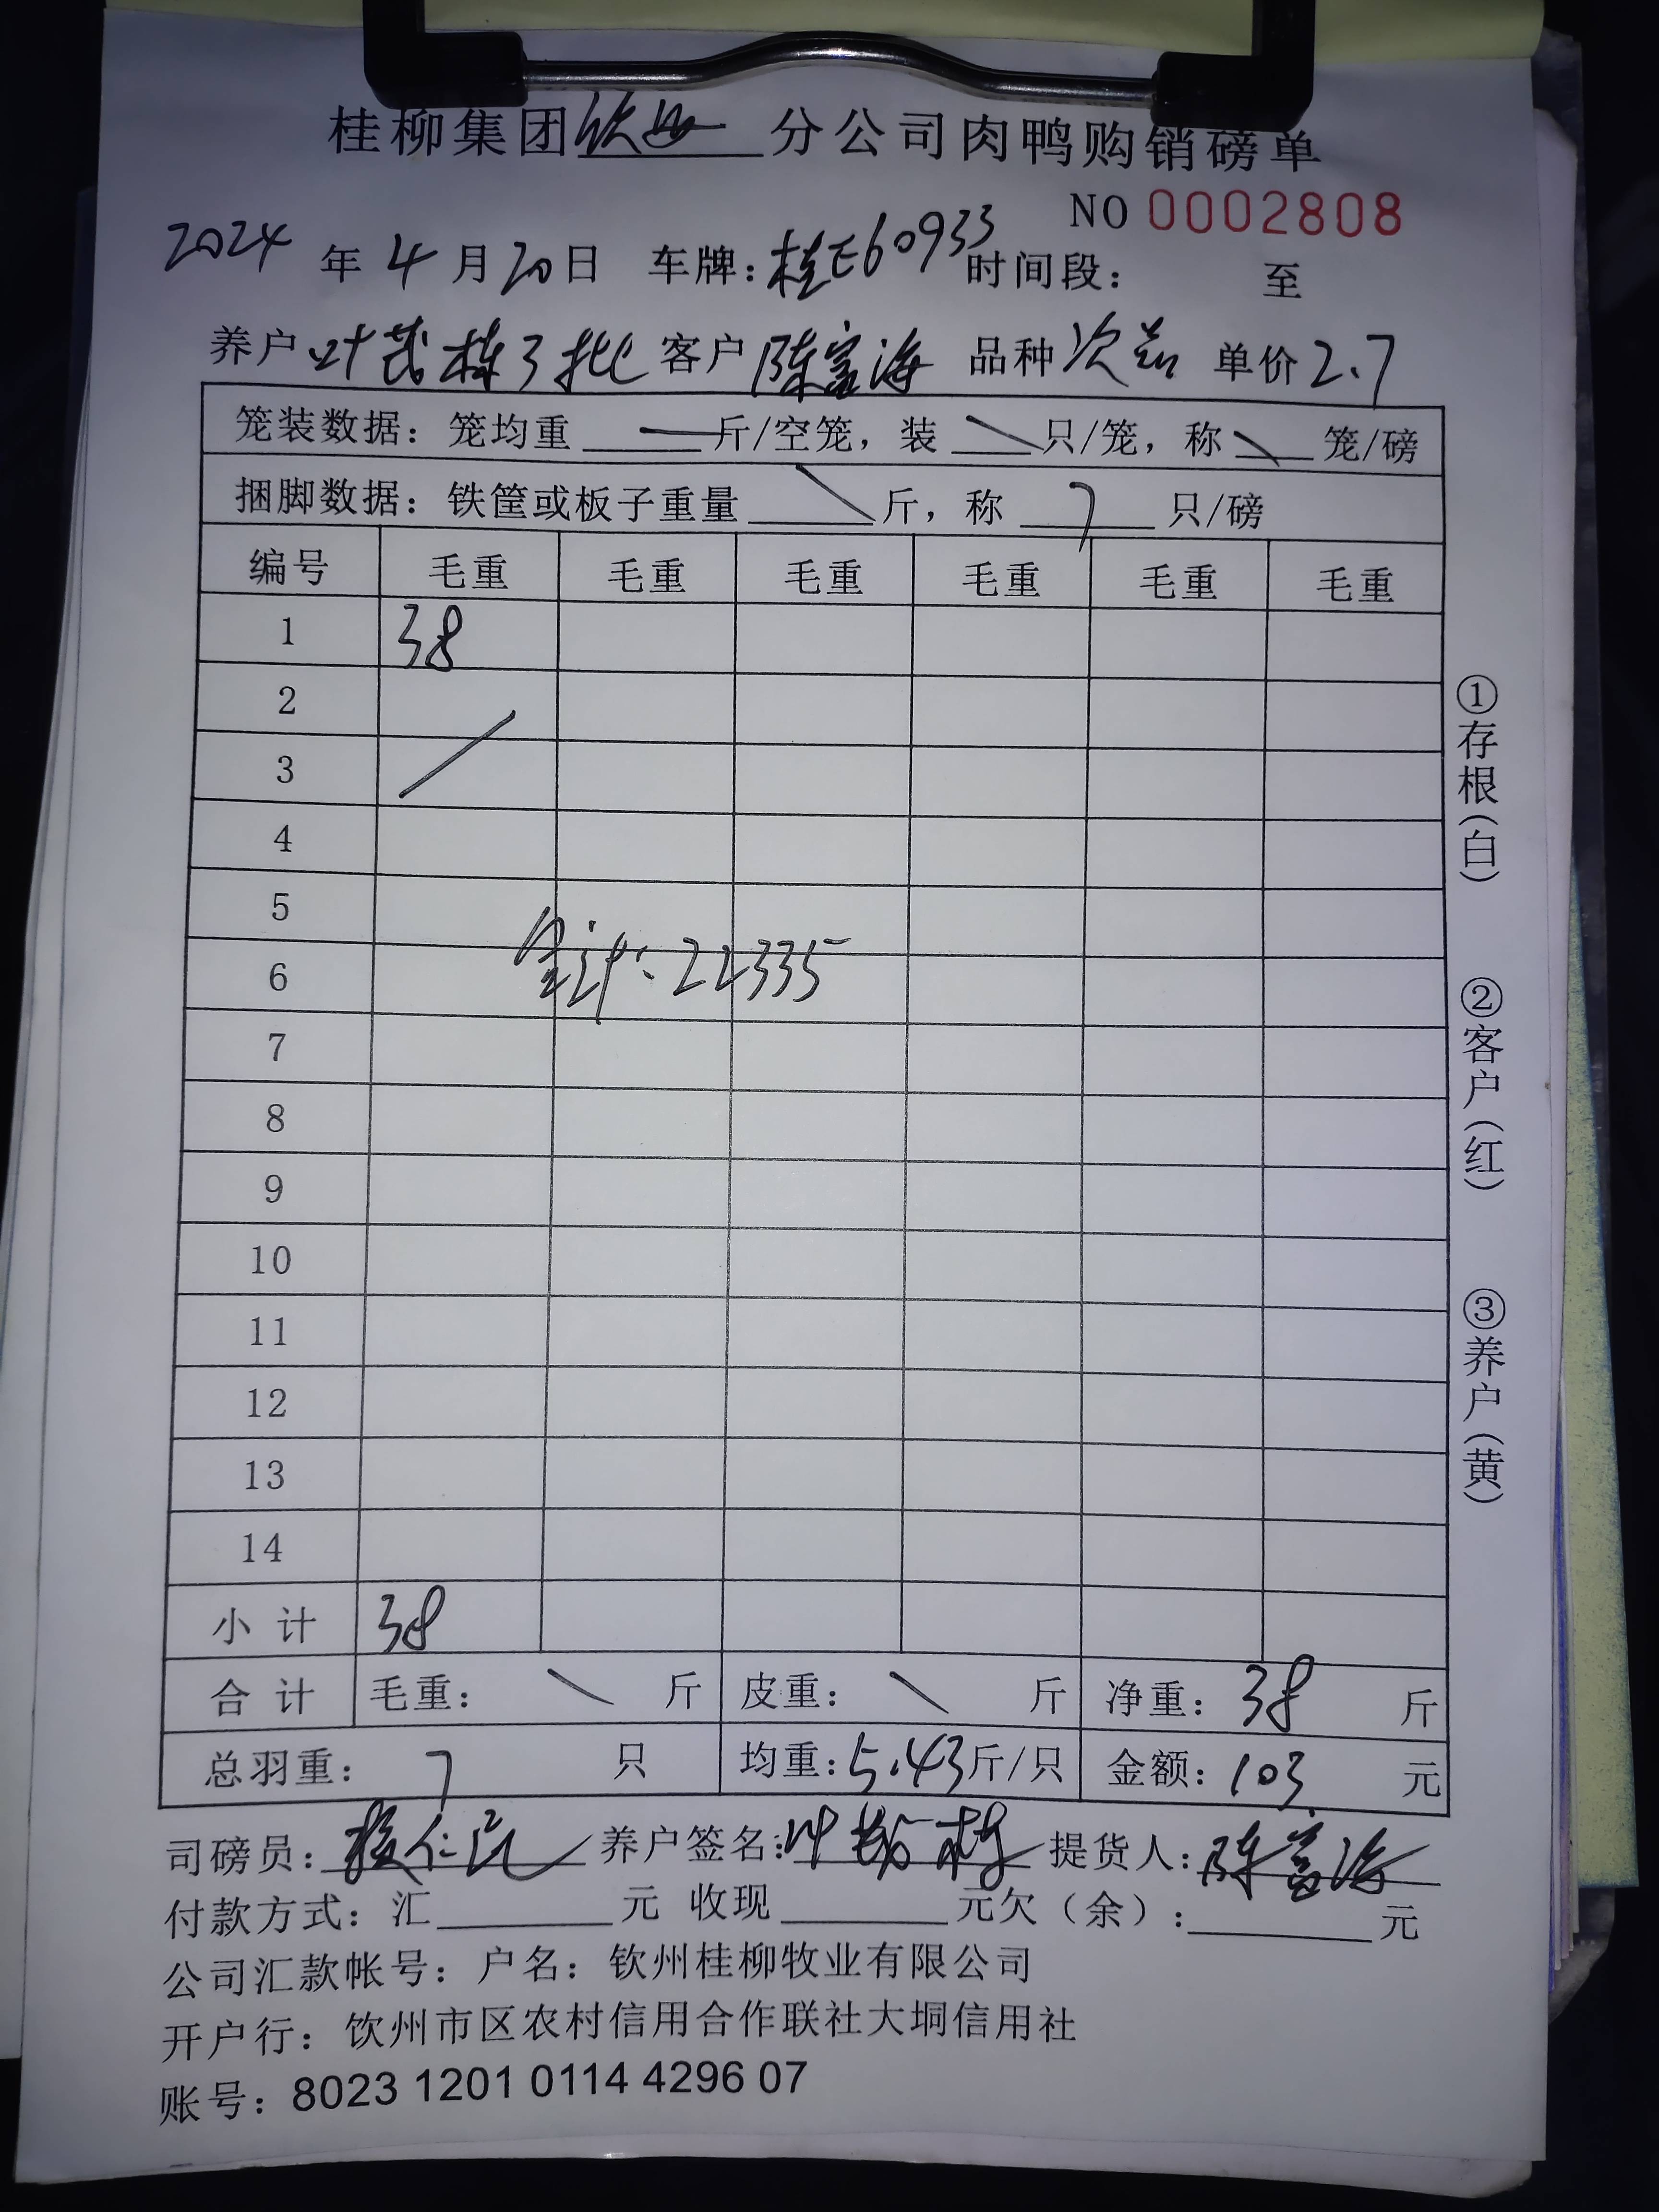 桂柳集团钦州分公司肉鸭购销磅单
NO 0002808
2024年4月20日 车牌:桂E60933 时间段: 至
养户叶茂栋3批 客户陈富海 品种次品 单价2.7
笼装数据:笼均重 — 斤/空笼,装 \ 只/笼,称 \ 笼/磅
捆脚数据:铁筐或板子重量 \ 斤,称 7 只/磅
编号 毛重 毛重 毛重 毛重 毛重 毛重
1 38
2
3
4
5
6
金计:22335
7
8
9
10
11
12
13
14
小计 38
合计 毛重: \ 斤 皮重: \ 斤 净重:38 斤
总羽重:7 只 均重:5.43斤/只 金额:103 元
司磅员: 养户签名:叶茂栋 提货人:陈富海
付款方式:汇 元 收现 元欠(余): 元
公司汇款帐号:户名:钦州桂柳牧业有限公司
开户行:钦州市区农村信用合作联社大垌信用社
账号:8023 1201 0114 4296 07
①存根(白)
②客户(红)
③养户(黄)